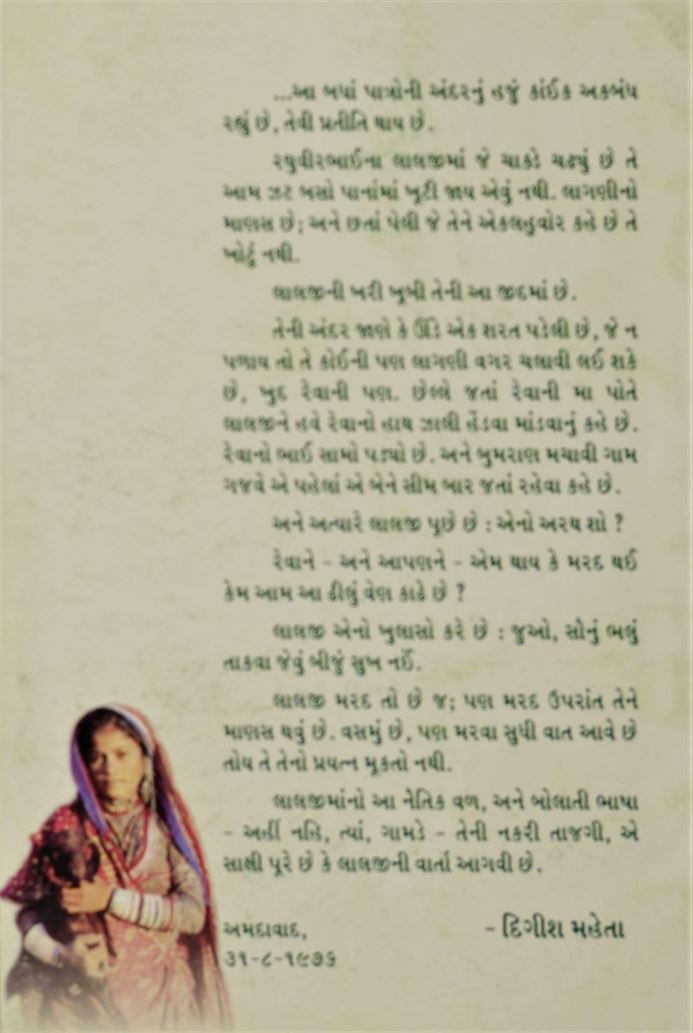 ...આ બધાં પાત્રોની અંદરનું હજું કાંઈક અકબંધ
રહ્યું છે, તેવી પ્રતીતિ થાય છે.
રઘુવીરભાઈના લાલજીમાં જે ચાકડે ચઢ્યું છે તે
આમ ઝટ બસો પાનાંમાં ખૂટી જાય એવું નથી. લાગણીનો
માણસ છે; અને છતાં પેલી જે તેને એકલહુવોર કહે છે તે
ખોટું નથી.
લાલજીની ખરી ખૂબી તેની આ જીદમાં છે.
તેની અંદર જાણે કે ઊંડે એક શરત પડેલી છે, જે ન
પળાય તો તે કોઈની પણ લાગણી વગર ચલાવી લઈ શકે
છે, ખુદ રેવાની પણ. છેલ્લે જતાં રેવાની મા પોતે
લાલજીને હવે રેવાનો હાથ ઝાલી હેંડવા માંડવાનું કહે છે.
રેવાનો ભાઈ સામો પડ્યો છે. અને બુમરાણ મચાવી ગામ
ગજવે એ પહેલાં એ બેને સીમ બાર જતાં રહેવા કહે છે.
અને અત્યારે લાલજી પૂછે છે : એનો અરથ શો ?
રેવાને - અને આપણને - એમ થાય કે મરદ થઈ
કેમ આમ આ ઢીલું વેણ કાઢે છે ?
લાલજી એનો ખુલાસો કરે છે : જુઓ, સૌનું ભલું
તાકવા જેવું બીજું સુખ નઈં.
લાલજી મરદ તો છે જ; પણ મરદ ઉપરાંત તેને
માણસ થવું છે. વસમું છે, પણ મરવા સુધી વાત આવે છે
તોય તે તેનો પ્રયત્ન મૂકતો નથી.
લાલજીમાંનો આ નૈતિક વળ, અને બોલાતી ભાષા
- અહીં નહિ, ત્યાં, ગામડે - તેની નકરી તાજગી, એ
સાક્ષી પૂરે છે કે લાલજીની વાર્તા આગવી છે.
અમદાવાદ, - દિગીશ મહેતા
૩૧-૮-૧૯૭૬